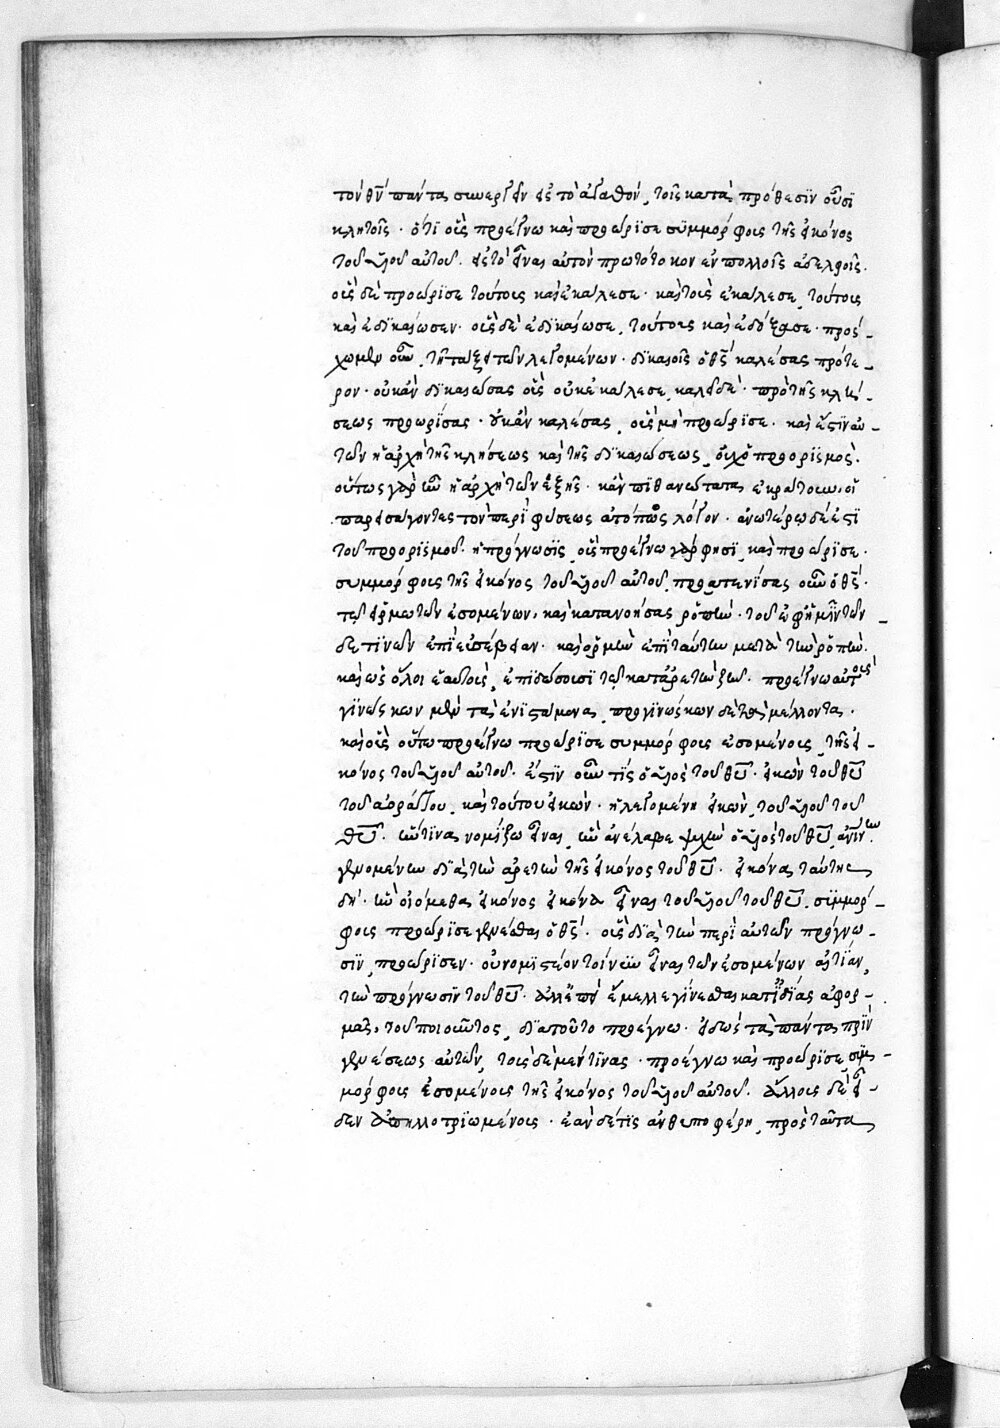 τὸν θν̅ πάντα συνεργεῖν εἰς τὸ ἀγαθόν, τοῖς κατὰ πρόθεσϊν οὖσϊ
κλητοῖς · ὅτι οὓς προέγνω καὶ προώρϊσε συμμόρφοις τῆς εἰκόνος
τοῦ υἱοῦ αὐτοῦ. εἰς τὸ εἶναι αὐτὸν πρωτότοκον ἐν πολλοῖς ἀδελφοῖς.
οὓς δὲ προώρϊσε τούτοις καὶ ἐκάλεσε · καὶ τοὺς ἐκάλεσε, τούτοις
καὶ ἐδϊκαίωσεν · οὓς δὲ ἐδϊκαίωσε, τούτοις καὶ ἐδόξασε · προσ-
χωμεν οὖν, τῇ τάξει τῶν λεγομένων · δικαιοῖς ὁ θς̅ καλέσας πρότε-
ρον · οὐκ ἂν δϊκαιώσας οὓς οὐκ ἐκάλεσε, καλεῖ δὲ · πρὸ τῆς κλή-
σεως προωρίσας · οὐκ ἂν καλέσας, οὓς μὴ προώρϊσε · καὶ ἔστϊν αὐ-
τῶν ἡ ἀρχὴ τῆς κλήσεως καὶ τῆς δϊκαιώσεως, οὐχ ὁ προορϊσμός.
οὕτως γὰρ ὢν ἡ ἀρχὴ τῶν ἑξῆς · κἂν πϊθανώτατα ἐκράτουν, οἱ
παρεισάγοντες τὸν περὶ φύσεως ἀτόπως λόγον · ἀνωτέρω δέ ἐστϊ
τοῦ προορισμοῦ · ἡ πρόγνωσϊς, οὓς προέγνω γὰρ φησϊ, καὶ προώρισε ·
συμμόρφοις τῆς εἰκόνος τοῦ υἱοῦ αὐτοῦ, προατενίσας οὖν ὁ θς̅ ·
τῷ εἱρμῷ τῶν ἐσομένων, καὶ κατανοήσας ῥοπὴν · τοῦ ἐφ' ἡμῖν τῶν-
δε τϊνῶν ἐπὶ εὐσέβειαν · καὶ ὁρμὴν ἐπὶ ταύτην μετὰ τὴν ῥοπὴν.
καὶ ὡς ὅλοι ἑαυτοὺς, ἐπιδώσουσϊ τῷ κατ' ἀρετὴν ζῆν · προέγνω αὐτοὺς
γϊνώσκων μὲν τὰ ἐνϊστάμενα, προγϊνώσκων δὲ τὰ μέλλοντα ·
καὶ οὓς οὕτω προέγνω προώρϊσε συμμόρφοις ἐσομένοις, τῆς εἰ-
κόνος τοῦ υἱοῦ αὐτοῦ · ἔστϊν οὖν τίς ὁ υἱὸς τοῦ θυ̅ · εἰκὼν τοῦ θυ̅
τοῦ ἀοράτου, καὶ τούτου εἰκὼν · ἡ λεγομένη εἰκὼν, τοῦ υἱοῦ τοῦ
θυ̅. ἥντϊνα νομίζω εἶναι, ἣν ἀνέλαβε ψυχὴν ὁ υἱὸς τοῦ θυ̅ ἀνίνην.
γενομένην διὰ τὴν ἀρετὴν τῆς εἰκόνος τοῦ θυ̅ · εἰκόνας ταύτης
δὴ · ἣν οἰόμεθα εἰκόνος εἰκόνα εἶναι τοῦ υἱοῦ τοῦ θυ̅. συμμόρ-
φοις προώρισε γενέσθαι ὁ θς̅ · οὓς διὰ τὴν περὶ αὐτῶν πρόγνω-
σϊν, προώρισεν · οὐ νομιστέον τοίνυν εἶναι τῶν ἐσομένων αἰτίαν,
τὴν πρόγνωσϊν τοῦ θυ̅ · ἀλλ' ἐπεὶ ἔμελλε γίνεσθαι κατ' ἰδίας ἀφορ-
μὰς, τοῦ ποιοῦντος, διὰ τοῦτο προέγνω · εἰδὼς τὰ πάντα πρὶν
γενέσεως αὐτῶν, τοὺς δὲ μέντϊνας · προέγνω καὶ προώρισε, συμ-
μόρφοις ἐσομένοις τῆς εἰκόνος τοῦ υἱοῦ αὐτοῦ. ἄλλοις δὲ εἶ-
δεν ἀπηλλοτριωμένοις · ἐὰν δέ τϊς ἀνθυποφέρῃ, πρὸς ταῦτα